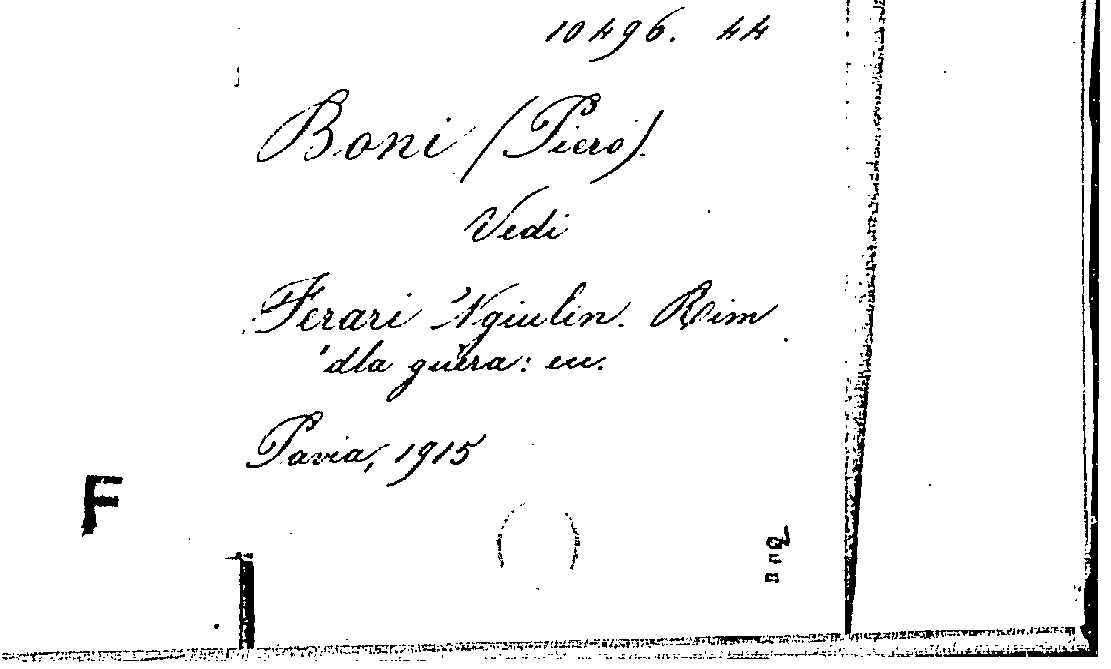 10496. 44
Boni (Piero).
Vedi
Ferari 'Ngiulin. Rim
'dla guèra: ecc.
Pavia, 1915
F